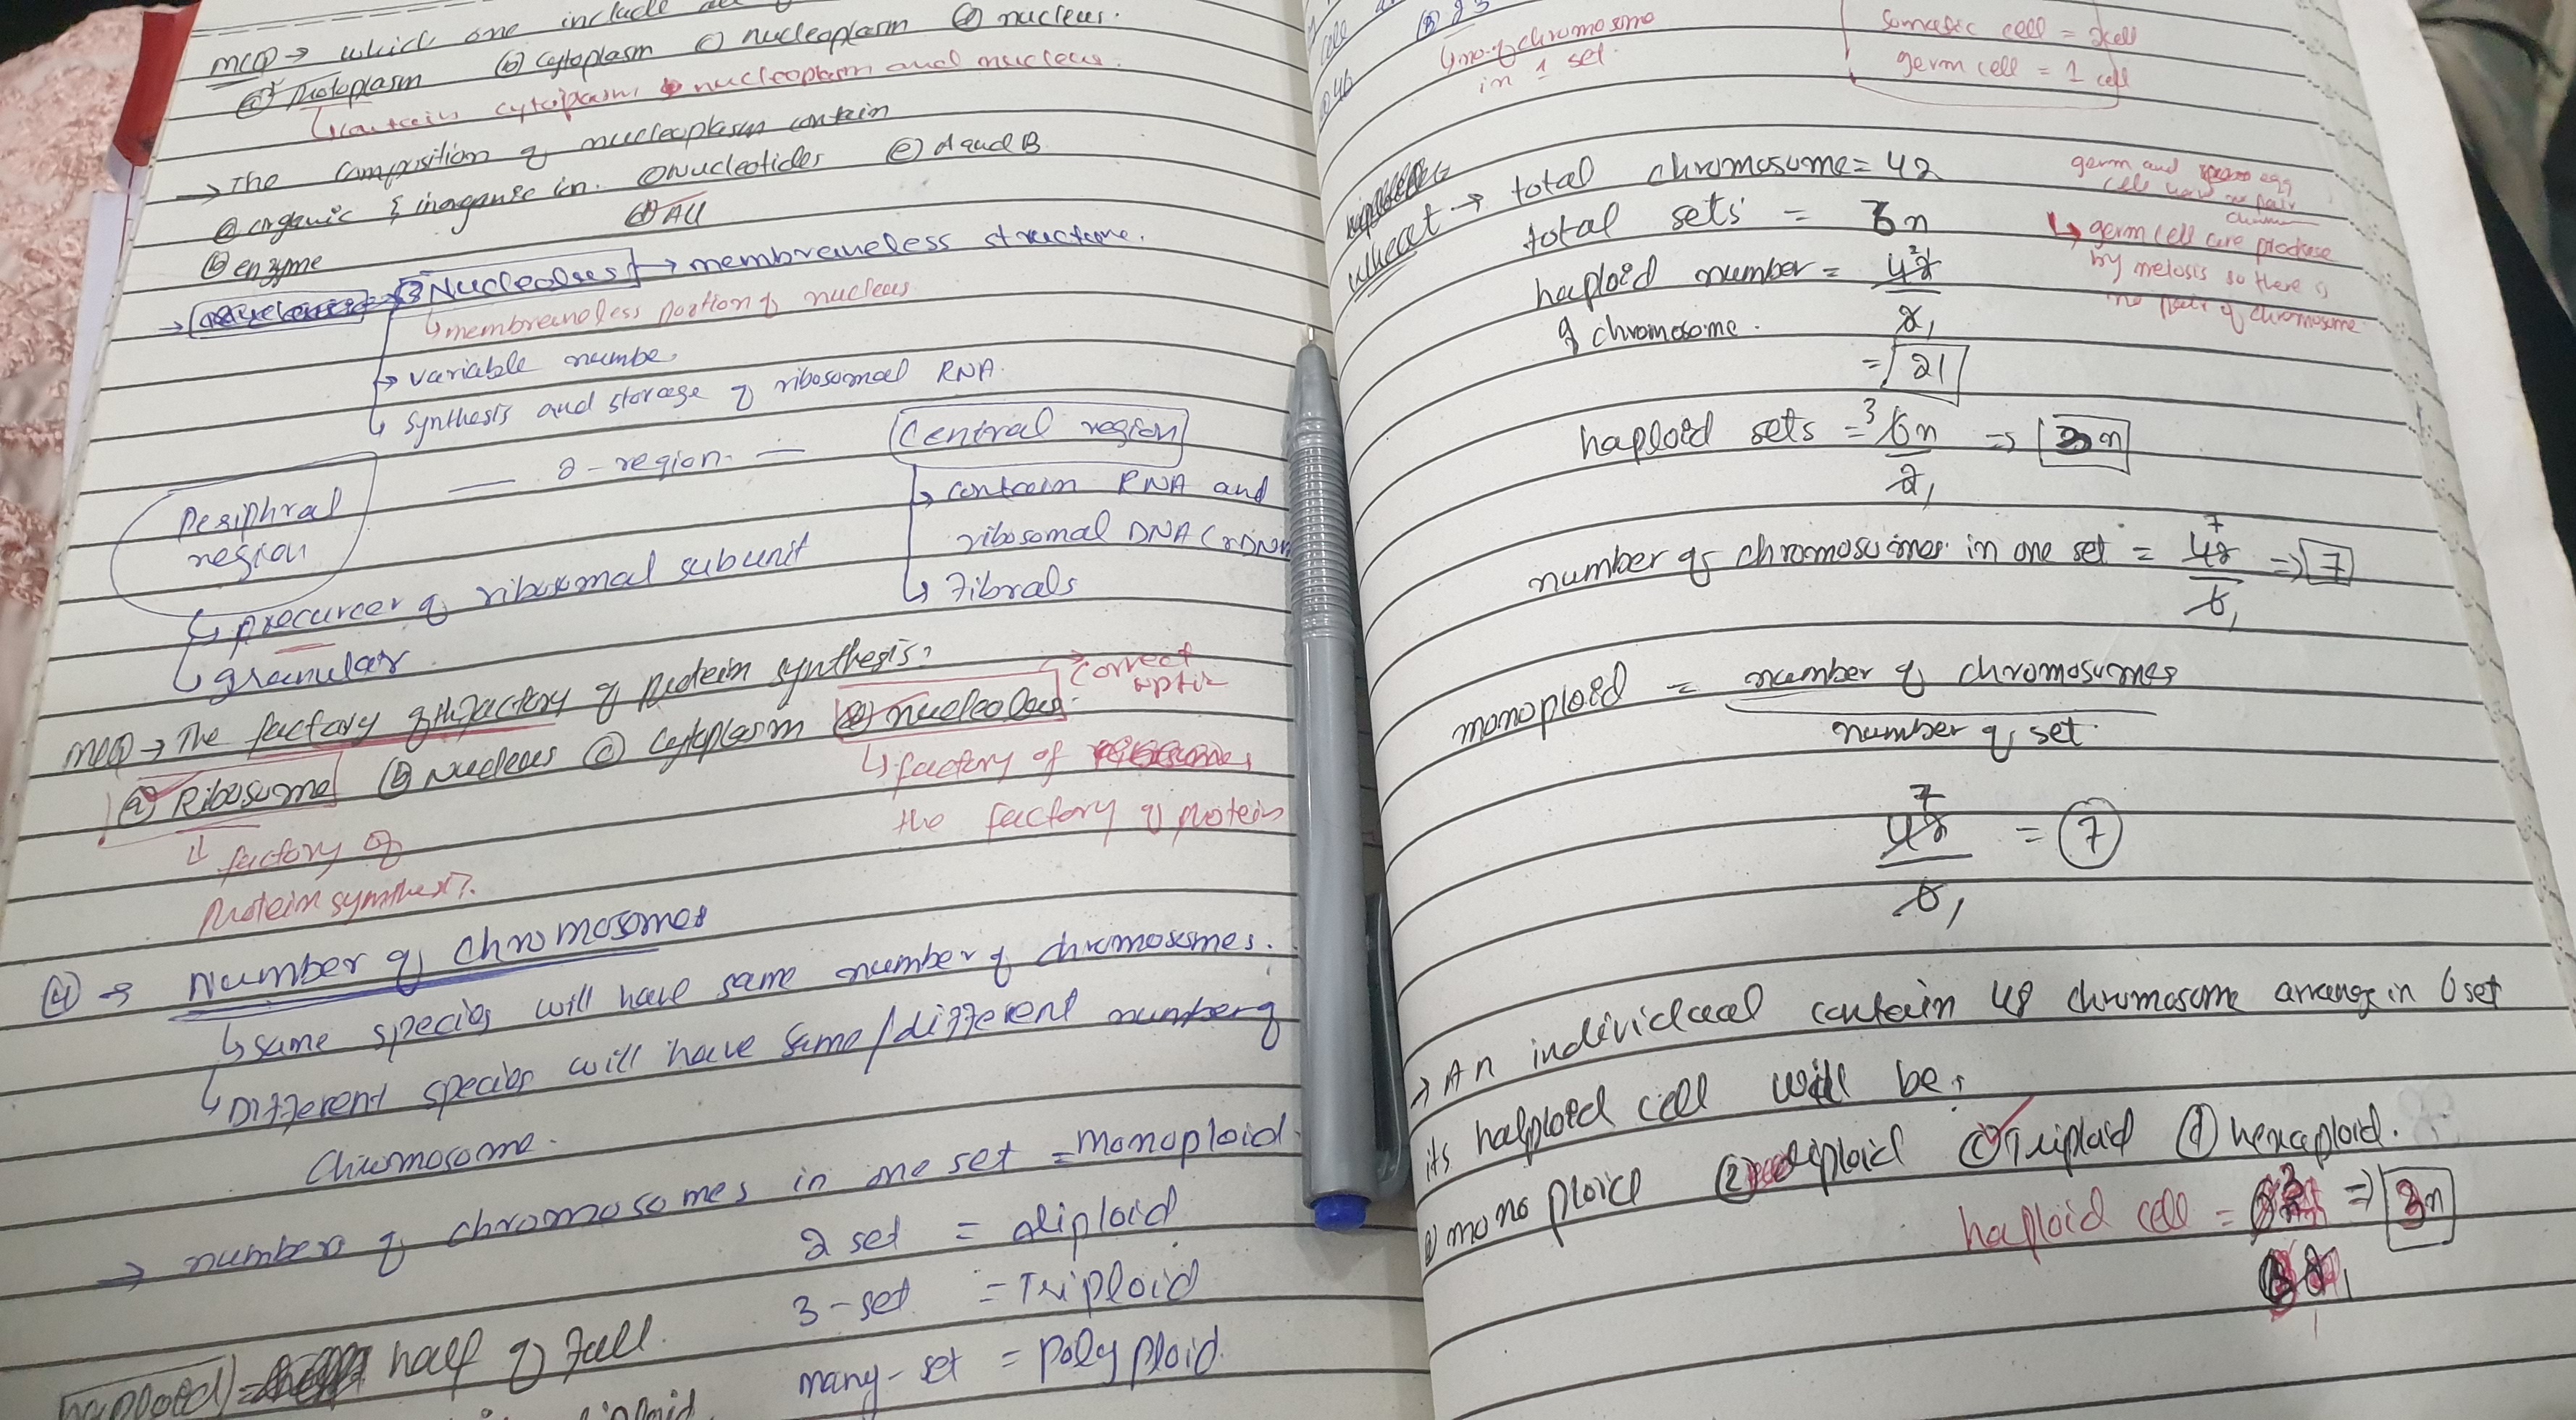 mcq → which one include
(a) Protoplasm (b) Cytoplasm (c) nucleoplasm (d) nucleus.
↳ contain cytoplasm, nucleoplasm and nucleus.
→ The composition of nucleoplasm contain
(a) organic & inorganic ion. (c) Nucleotides (e) A and B
(b) enzyme (d) All
→ Nucleolus → membraneless structure.
↳ membraneless portion of nucleus
→ variable numbe
↳ synthesis and storage of ribosomal RNA.
— 2-region. —
Periphral region
↳ precurcer of ribosomal subunit
↳ granular
Central region
↳ contain RNA and
ribosomal DNA (rDN
↳ Fibrals
MCQ → The factory of the factory of protein synthesis?
(a) Ribosume (b) Nucleus (c) Cytoplasm (d) nucleolous.
→ correct
↓ factory of
Protein synthesis?
↳ factory of
the factory of protein
(4) → Number of Chromosomes
↳ same species will have same number of chromosomes.
↳ Different species will have same/different number of
Chromosome.
→ numbers of chromosomes in one set = Monoploid.
2 set = diploid
3-set = Triploid
many-set = Polyploid.
haploid = half of full.
↳ no. of chromosome
in 1 set.
Somatic cell = 2cell
germ cell = 1 cell
wheat → total chromosome = 42
total sets = 6n
haploid number = 42
of chromosome. 2
= 21
haploid sets = 3 6n ⇒ 3n
2,
germ and egg
cell have no pair
↳ germ cell are produce
by meiosis so there is
no pair of chromosome
number of chromosomes in one set = 42 ⇒ 7
6,
monoploid = number of chromosumes
number of set.
7
42 = 7
6,
→ An individual contain 48 chromosome arrange in 6 set
its halploid cell will be.
mono ploid (2) diploid (c) Triploid (d) hexaploid.
haploid cell = ⇒ 3n